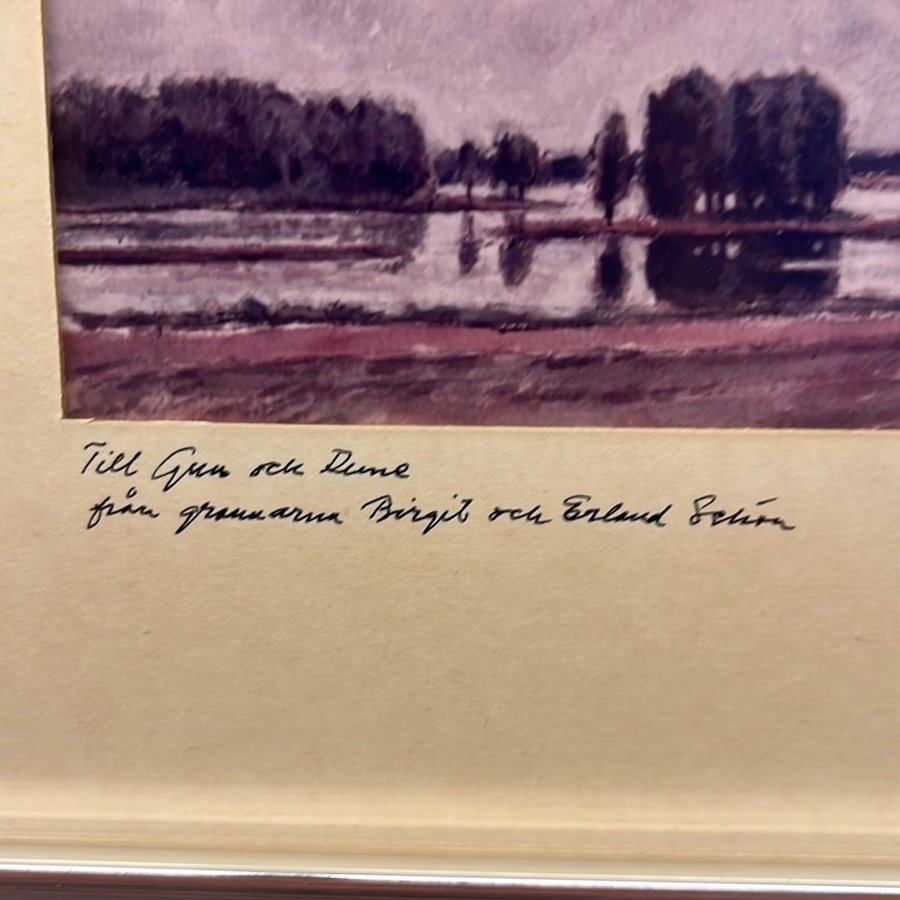 Till Gun och Rune
från grannarna Birgit och Erland Schön